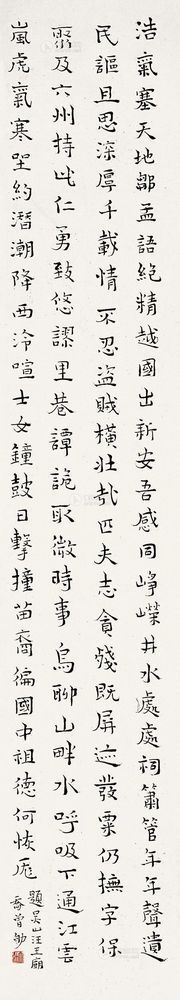 浩氣塞天地鄒孟語絕精越國出新安吾感同崢嶸井水處處祠簫管年年聲遺
民謳且思深厚千載情不忍盜賊橫壯哉匹夫志貪殘既屏迹發粟仍撫字保
聚及六州持此仁勇致悠謬里巷譚詭取徵時事烏聊山畔水呼吸下通江雲
嵐虎氣寒堅約潛潮降西泠喧士女鐘鼓日擊撞苗裔徧國中祖德何恢厖
題吳山汪王廟
喬曾劬